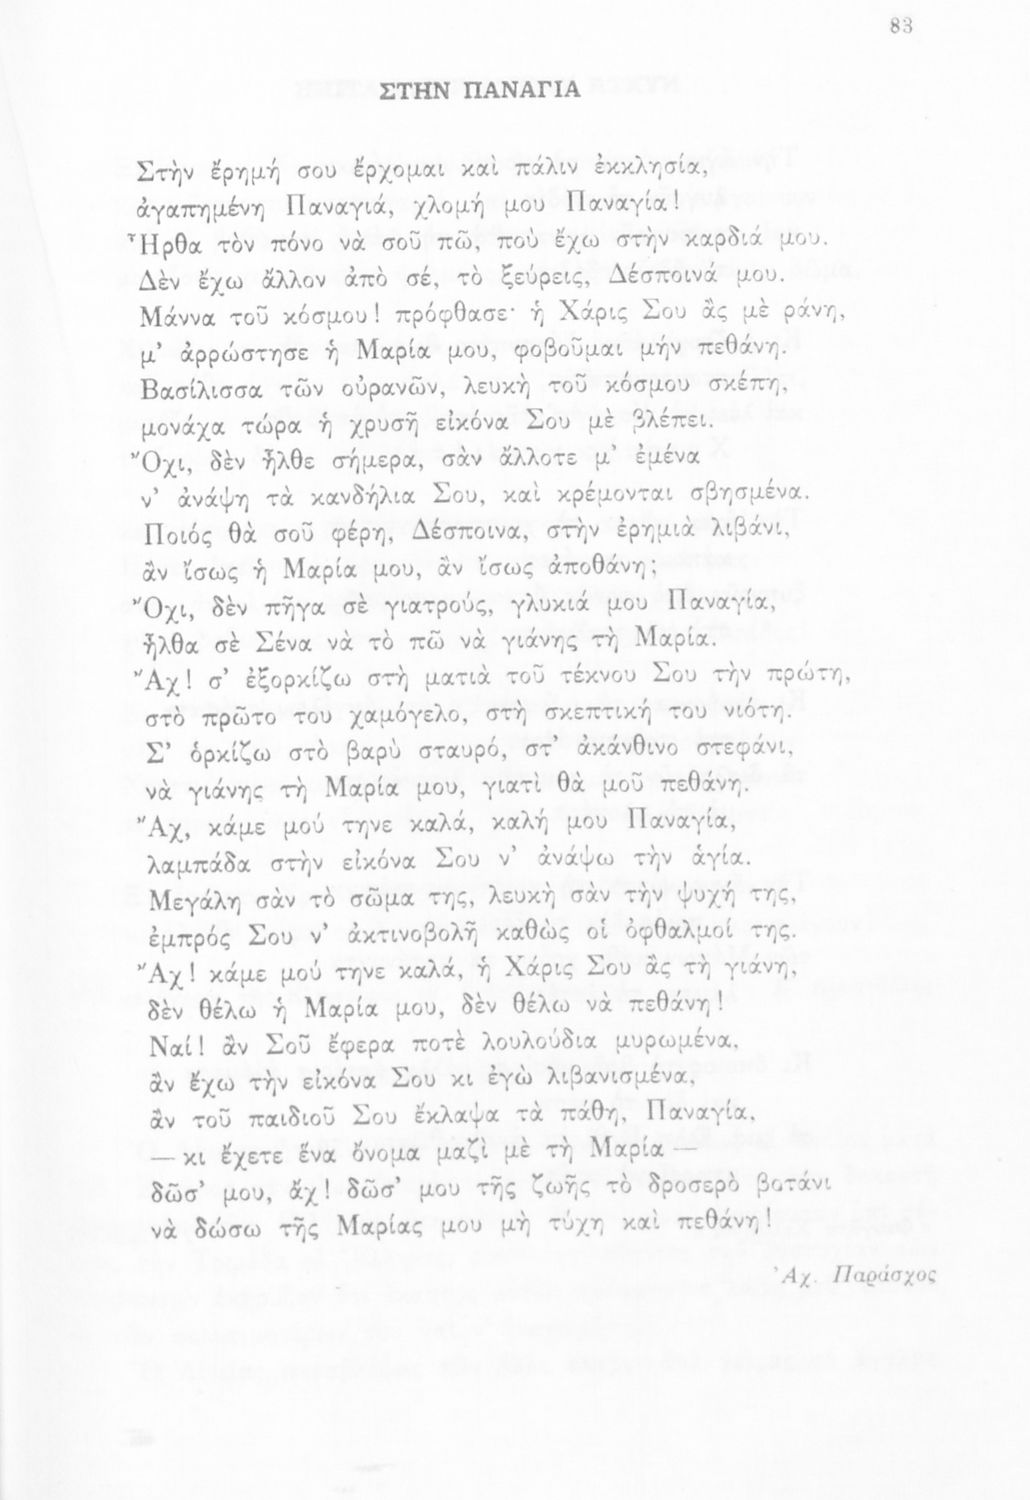 83
ΣΤΗΝ ΠΑΝΑΓΙΑ
Στὴν ἔρημή σου ἔρχομαι καὶ πάλιν ἐκκλησία,
ἀγαπημένη Παναγιά, χλομή μου Παναγία!
Ἦρθα τὸν πόνο νὰ σοῦ πῶ, ποὺ ἔχω στὴν καρδιά μου.
Δὲν ἔχω ἄλλον ἀπὸ σέ, τὸ ξεύρεις, Δέσποινά μου.
Μάννα τοῦ κόσμου! πρόφθασε· ἡ Χάρις Σου ἂς μὲ ράνη,
μ’ ἀρρώστησε ἡ Μαρία μου, φοβοῦμαι μήν πεθάνη.
Βασίλισσα τῶν οὐρανῶν, λευκὴ τοῦ κόσμου σκέπη,
μονάχα τώρα ἡ χρυσῆ εἰκόνα Σου μὲ βλέπει.
Ὄχι, δὲν ἦλθε σήμερα, σὰν ἄλλοτε μ’ ἐμένα
ν’ ἀνάψη τὰ κανδήλια Σου, καὶ κρέμονται σβησμένα.
Ποιός θὰ σοῦ φέρη, Δέσποινα, στὴν ἐρημιὰ λιβάνι,
ἂν ἴσως ἡ Μαρία μου, ἂν ἴσως ἀποθάνη;
Ὄχι, δὲν πῆγα σὲ γιατρούς, γλυκιά μου Παναγία,
ἦλθα σὲ Σένα νὰ τὸ πῶ νὰ γιάνης τὴ Μαρία.
Ἄχ! σ’ ἐξορκίζω στὴ ματιὰ τοῦ τέκνου Σου τὴν πρώτη,
στὸ πρῶτο του χαμόγελο, στὴ σκεπτική του νιότη.
Σ’ ὁρκίζω στὸ βαρὺ σταυρό, στ’ ἀκάνθινο στεφάνι,
νὰ γιάνης τὴ Μαρία μου, γιατὶ θὰ μοῦ πεθάνη.
Ἄχ, κάμε μού τηνε καλά, καλή μου Παναγία,
λαμπάδα στὴν εἰκόνα Σου ν’ ἀνάψω τὴν ἁγία.
Μεγάλη σὰν τὸ σῶμα της, λευκὴ σὰν τὴν ψυχή της,
ἐμπρός Σου ν’ ἀκτινοβολῆ καθὼς οἱ ὀφθαλμοί της.
Ἄχ! κάμε μού τηνε καλά, ἡ Χάρις Σου ἂς τὴ γιάνη,
δὲν θέλω ἡ Μαρία μου, δὲν θέλω νὰ πεθάνη!
Ναί! ἂν Σοῦ ἔφερα ποτὲ λουλούδια μυρωμένα,
ἂν ἔχω τὴν εἰκόνα Σου κι ἐγὼ λιβανισμένα,
ἂν τοῦ παιδιοῦ Σου ἔκλαψα τὰ πάθη, Παναγία,
— κι ἔχετε ἕνα ὄνομα μαζὶ μὲ τὴ Μαρία —
δῶσ’ μου, ἄχ! δῶσ’ μου τῆς ζωῆς τὸ δροσερὸ βοτάνι
νὰ δώσω τῆς Μαρίας μου μὴ τύχη καὶ πεθάνη!
Ἀχ. Παράσχος